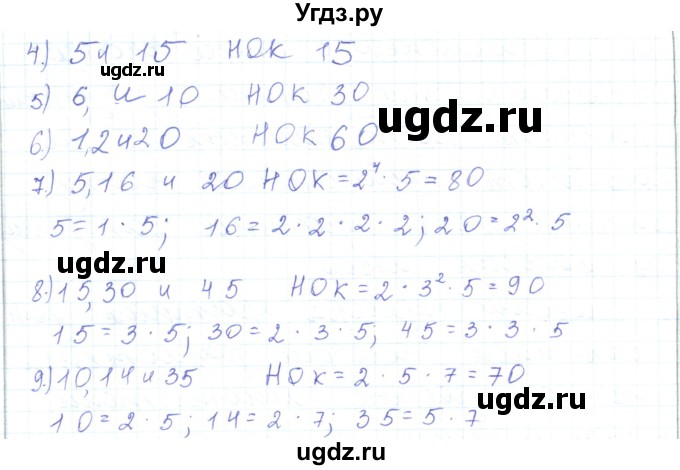 Угдз.ру
4.) 5 и 15 НОК 15
ugdz.ru
5) 6, и 10 НОК 30
ugdz.ru
6.) 1,2и20 НОК 60
7.) 5,16 и 20 НОК = 2⁴ · 5 = 80
5 = 1 · 5; 16 = 2 · 2 · 2 · 2; 20 = 2² · 5
ugdz.ru
8.) 15,30 и 45 НОК = 2 · 3² · 5 = 90
15 = 3 · 5; 30 = 2 · 3 · 5; 45 = 3 · 3 · 5
9.) 10,14 и 35 НОК = 2 · 5 · 7 = 70
ugdz.ru
10 = 2 · 5; 14 = 2 · 7; 35 = 5 · 7
ugdz.ru
ugdz.ru